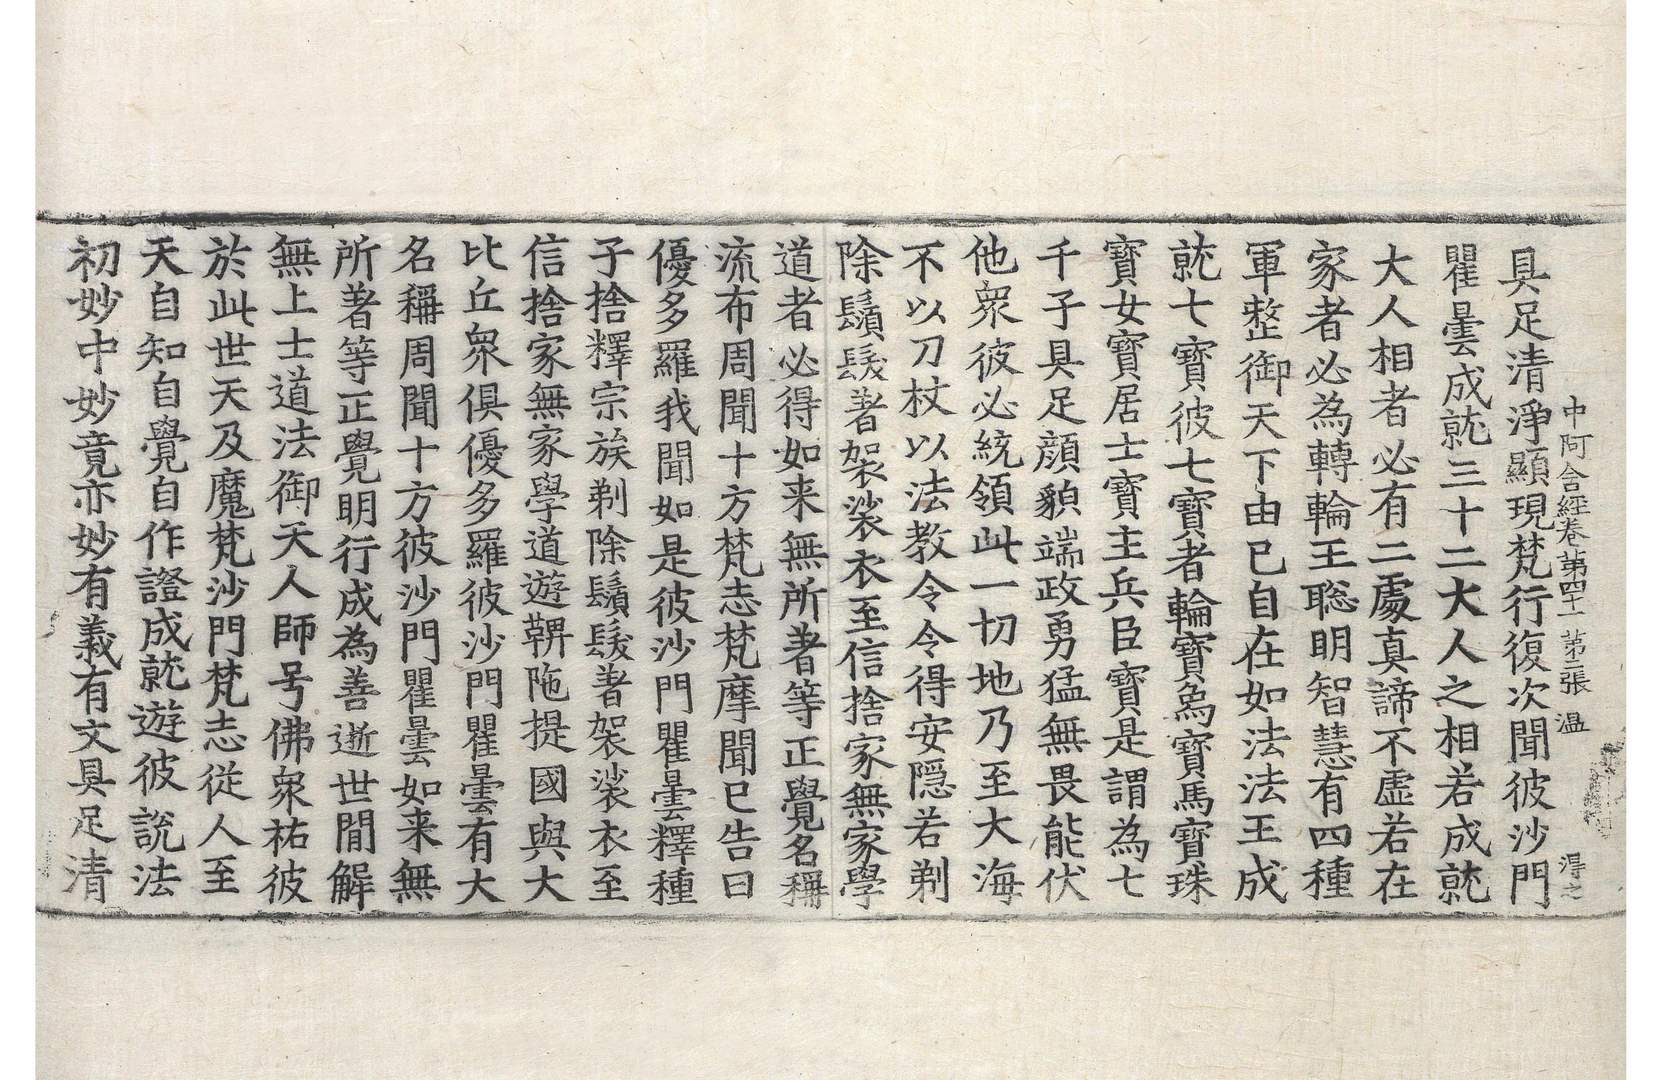 中阿含經卷第四十一 第二張 温 淂之
具足清淨顯現梵行復次聞彼沙門
瞿曇成就三十二大人之相若成就
大人相者必有二處真諦不虛若在
家者必為轉輪王聦明智慧有四種
軍整御天下由已自在如法法王成
就七寶彼七寶者輪寶烏寶馬寶珠
寶女寶居士寶主兵臣寶是謂為七
千子具足顔貌端政勇猛無畏能伏
他衆彼必統領此一切地乃至大海
不以刀杖以法教令令得安隱若剃
除鬚髮著袈裟衣至信捨家無家學
道者必得如来無所著等正覺名稱
流布周聞十方梵志梵摩聞已告曰
優多羅我聞如是彼沙門瞿曇釋種
子捨釋宗族剃除鬚髮著袈裟衣至
信捨家無家學道遊鞞陁提國與大
比丘衆俱優多羅彼沙門瞿曇有大
名稱周聞十方彼沙門瞿曇如来無
所著等正覺明行成為善逝世閒解
無上士道法御天人師号佛衆祐彼
於此世天及魔梵沙門梵志從人至
天自知自覺自作證成就遊彼說法
初妙中妙竟亦妙有義有文具足清